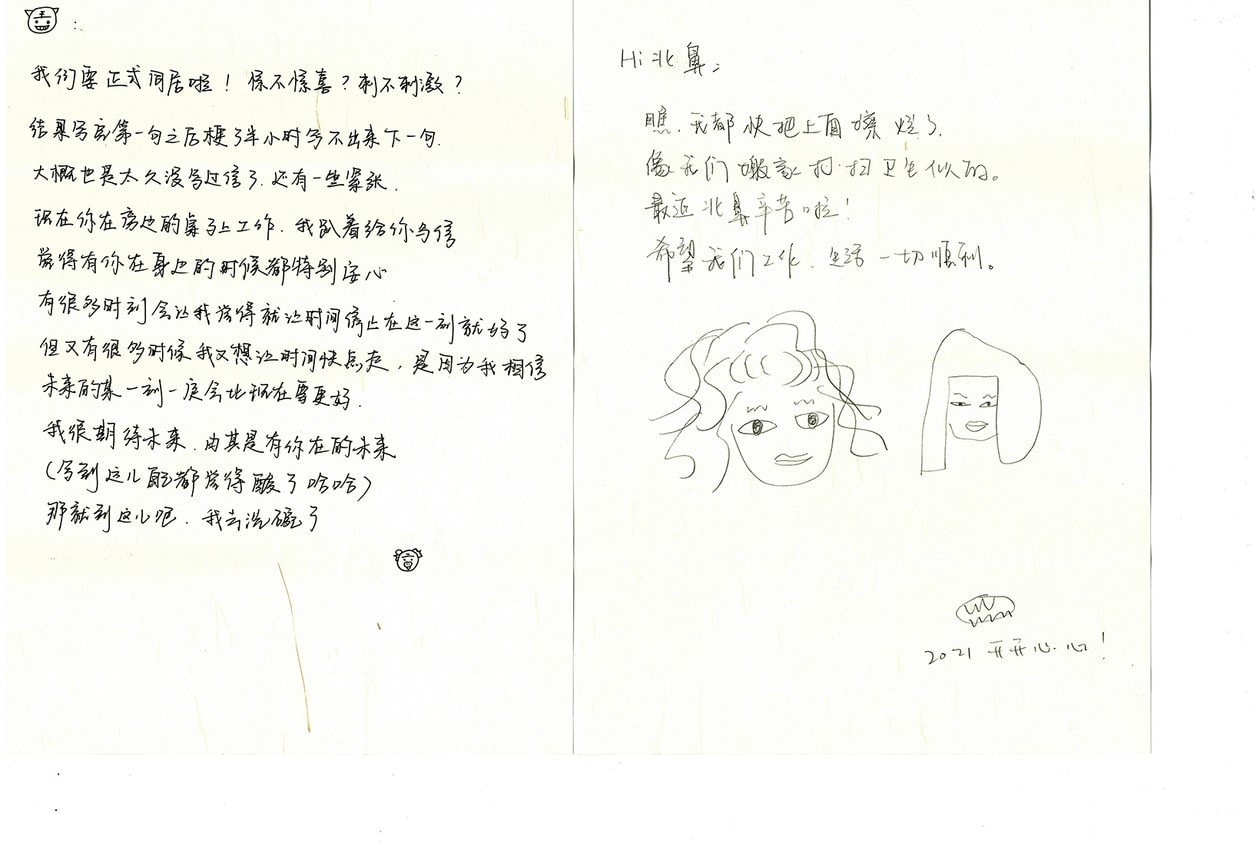 :
我们要正式同居啦！惊不惊喜？刺不刺激？
结果写完第一句之后梗了半小时写不出来下一句.
大概也是太久没写过信了.还有一些紧张.
现在你在旁边的桌子上工作.我趴着给你写信
觉得有你在身边的时候都特别安心
有很多时刻会让我觉得就让时间停止在这一刻就好了
但又有很多时候我又想让时间快点走，是因为我相信
未来的某一刻一定会比现在要更好.
我很期待未来.尤其是有你在的未来
（写到这儿都觉得酸了哈哈）
那就到这儿吧.我去洗碗了
Hi北鼻：
瞧.我都快把上面擦烂了.
像我们搬家打扫卫生似的。
最近北鼻辛苦啦！
希望我们工作、生活一切顺利。
2021 开开心心！